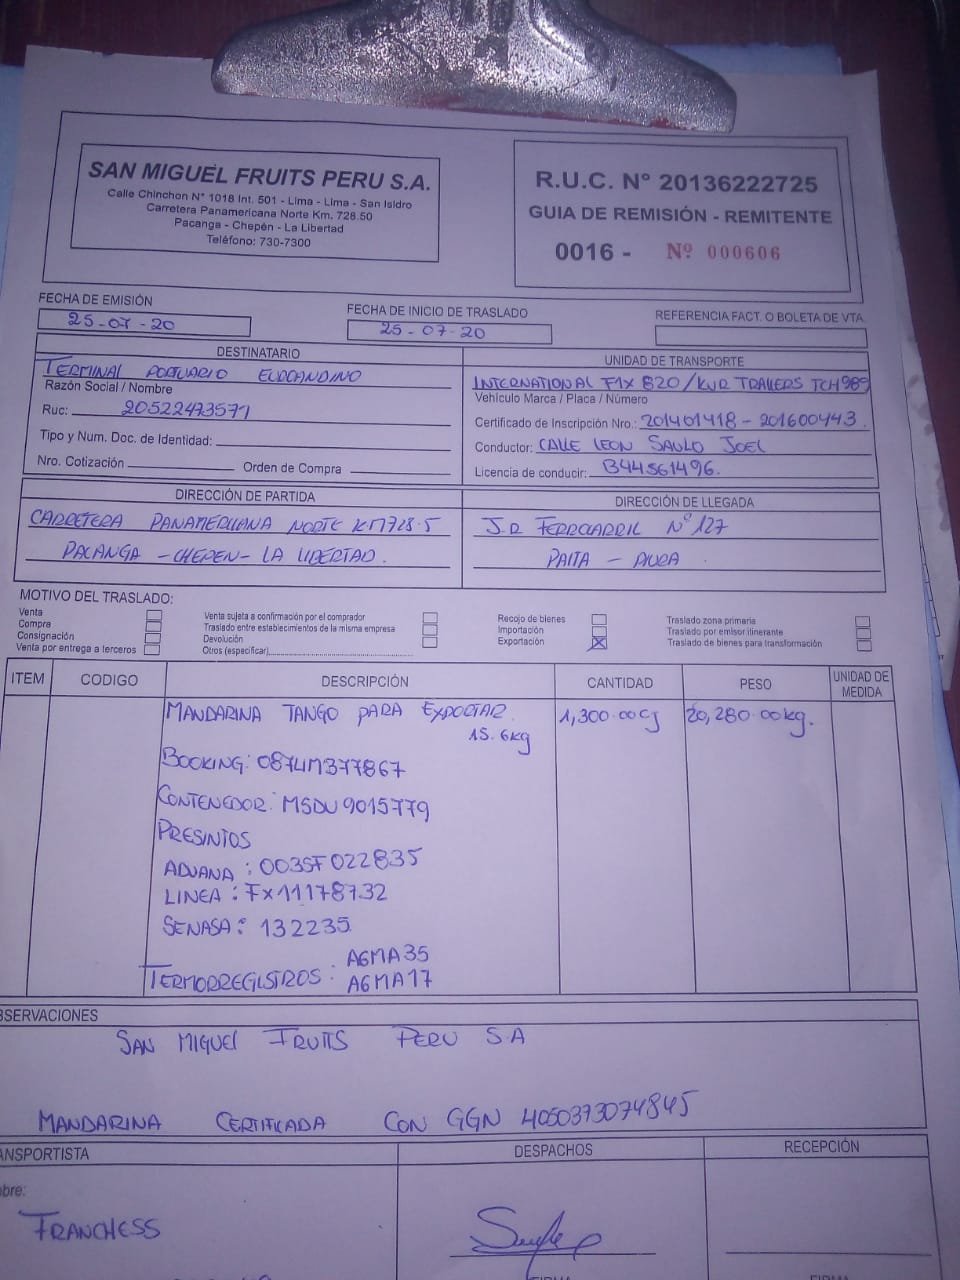 SAN MIGUEL FRUITS PERU S.A.
Calle Chinchon N° 1018 Int. 501 - Lima - Lima - San Isidro
Carretera Panamericana Norte Km. 728.50
Pacanga - Chepén - La Libertad
Teléfono: 730-7300
R.U.C. N° 20136222725
GUIA DE REMISIÓN - REMITENTE
0016 - Nº 000606
FECHA DE EMISIÓN
25-07-20
FECHA DE INICIO DE TRASLADO
25-07-20
REFERENCIA FACT. O BOLETA DE VTA.
DESTINATARIO
TERMINAL PORTUARIO EUROANDINO
Razón Social / Nombre
Ruc: 20522473571
Tipo y Num. Doc. de Identidad:
Nro. Cotización Orden de Compra
UNIDAD DE TRANSPORTE
INTERNATIONAL F1X 820 / KUR TRAILERS TCH989
Vehículo Marca / Placa / Número
Certificado de Inscripción Nro.: 201401418 - 201600443
Conductor: CALLE LEON SAULO JOEL
Licencia de conducir: B44561496.
DIRECCIÓN DE PARTIDA
CARRETERA PANAMERICANA NORTE KM728.5
PACANGA - CHEPEN - LA LIBERTAD.
DIRECCIÓN DE LLEGADA
J.R FERROCARRIL N° 127
PAITA - PIURA.
MOTIVO DEL TRASLADO:
Venta
Compra
Consignación
Venta por entrega a terceros
Venta sujeta a confirmación por el comprador
Traslado entre establecimientos de la misma empresa
Devolución
Otros (especificar)
Recojo de bienes
Importación
Exportación X
Traslado zona primaria
Traslado por emisor itinerante
Traslado de bienes para transformación
ITEM CODIGO DESCRIPCIÓN CANTIDAD PESO UNIDAD DE MEDIDA
MANDARINA TANGO PARA EXPORTAR. 1,300.00 CJ 20,280.00 kg.
15.6kg
BOOKING: 087LM377867
CONTENEDOR: MSDU 9015779
PRESINTOS
ADUANA: 003SF022835
LINEA: FX11178732
SENASA: 132235
TERMORREGISTROS: A6MA35
A6MA17
BSERVACIONES
SAN MIGUEL FRUITS PERU S.A
MANDARINA CERTIFICADA CON GGN 4050373074845
ANSPORTISTA
DESPACHOS
RECEPCIÓN
bre:
FRANCHESS